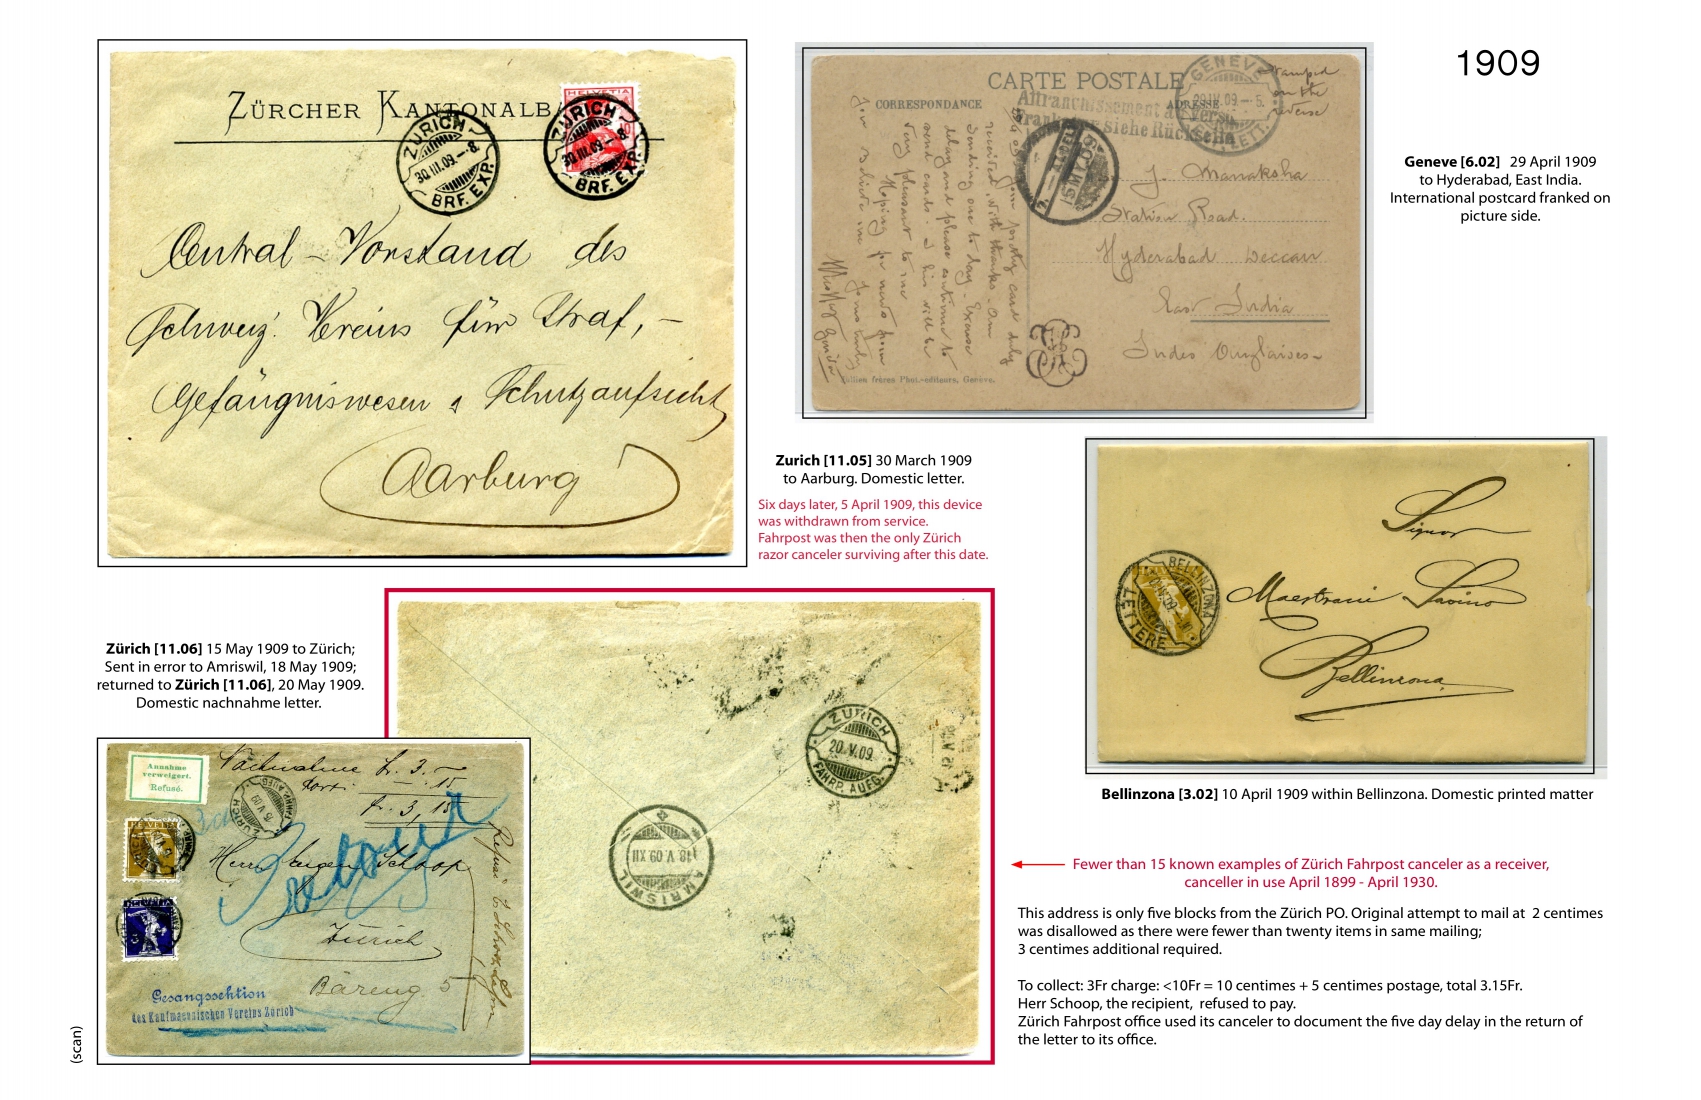 1909
ZÜRCHER KANTONALB
ZÜRICH
30.III.09.–8.
BRF. EXP.
HELVETIA
10
ZÜRICH
30.III.09.–8.
BRF. EXP.
Central-Vorstand des
Schweiz. Vereins für Straf,-
Gefängniswesen & Schutzaufsicht
Aarburg
CARTE POSTALE
CORRESPONDANCE
ADRESSE
GENEVE
29.IV.09.–5.
LETT.
Affranchissement au verso
Frankatur siehe Rückseite
stamped
on the
reverse
J. Manaksha
Station Road.
Hyderabad Deccan
East India
Indes Anglaises-
received with thanks. Am
sending one to day. Excuse
delay and please continue to
send cards
very pleasant to me
Hoping
Jullien frères Phot.-editeurs, Genève.
Geneve [6.02] 29 April 1909
to Hyderabad, East India.
International postcard franked on
picture side.
Zurich [11.05] 30 March 1909
to Aarburg. Domestic letter.
Six days later, 5 April 1909, this device
was withdrawn from service.
Fahrpost was then the only Zürich
razor canceler surviving after this date.
BELLINZONA
LETTERE
Signor
Maestrani Savino
Bellinzona
Bellinzona [3.02] 10 April 1909 within Bellinzona. Domestic printed matter
Zürich [11.06] 15 May 1909 to Zürich;
Sent in error to Amriswil, 18 May 1909;
returned to Zürich [11.06], 20 May 1909.
Domestic nachnahme letter.
ZÜRICH
20.V.09.
FAHRP. AUFG.
AMRISWIL
18.V.09 XII
Annahme
verweigert.
Refusé.
Nachnahme fr. 3.–
Port: –.15
fr. 3,15
ZÜRICH
15.V.09
FAHRP. AUFG.
HELVETIA
Retour
Herrn Eugen Schoop
Zürich
Bäreng. 5
Gesangssektion
des Kaufmaennischen Vereins Zürich
(scan)
Fewer than 15 known examples of Zürich Fahrpost canceler as a receiver,
canceller in use April 1899 - April 1930.
This address is only five blocks from the Zürich PO. Original attempt to mail at 2 centimes
was disallowed as there were fewer than twenty items in same mailing;
3 centimes additional required.
To collect: 3Fr charge: <10Fr = 10 centimes + 5 centimes postage, total 3.15Fr.
Herr Schoop, the recipient, refused to pay.
Zürich Fahrpost office used its canceler to document the five day delay in the return of
the letter to its office.